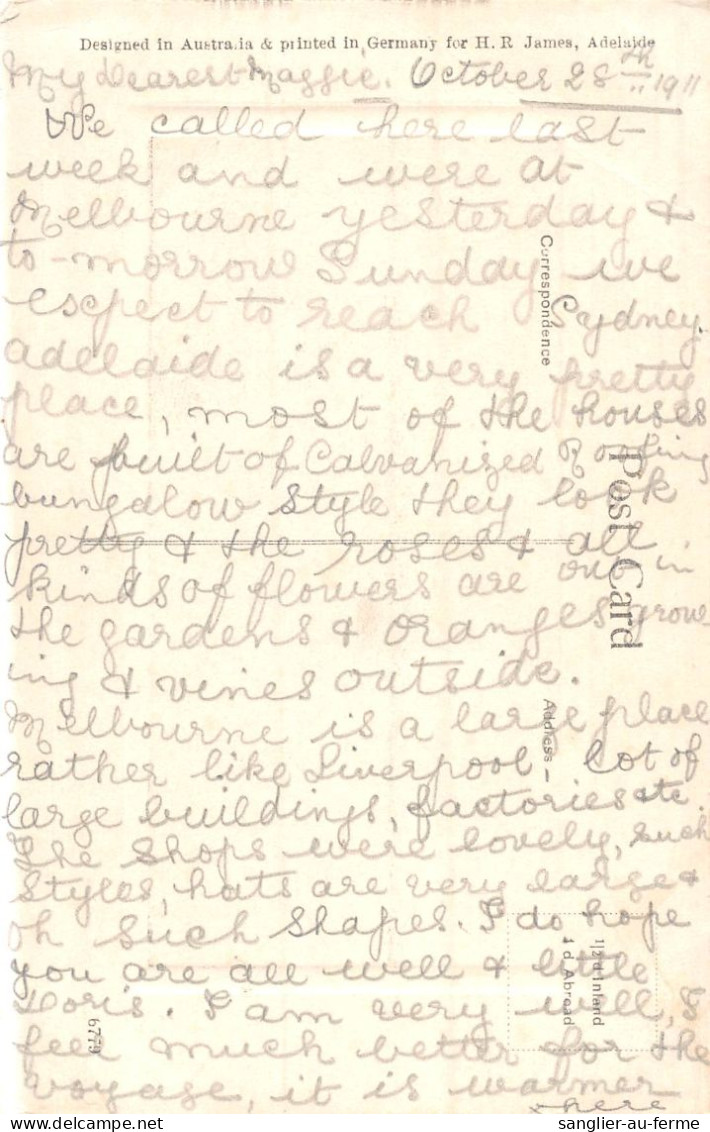 Designed in Australia & printed in Germany for H. R. James, Adelaide
My Dearest Maggie. October 28th 1911
We called here last
week and were at
Melbourne yesterday &
to-morrow Sunday we
escpect to reach Sydney.
Adelaide is a very pretty
place, most of the houses
are built of Calvanized Roofing
bungalow style they look
pretty & the roses & all
kinds of flowers are out in
the gardens & oranges grow
ing & vines outside.
Melbourne is a large place
rather like Liverpool lot of
large buildings, factories etc.
The shops were lovely, such
styles, hats are very large &
oh such shapes. I do hope
you are all well & little
Doris. I am very well, I
feel much better for the
voyage, it is warmer
here
Correspondence
Post Card
Address —
1/2 d Inland
1 d Abroad
6779
sanglier-au-ferme